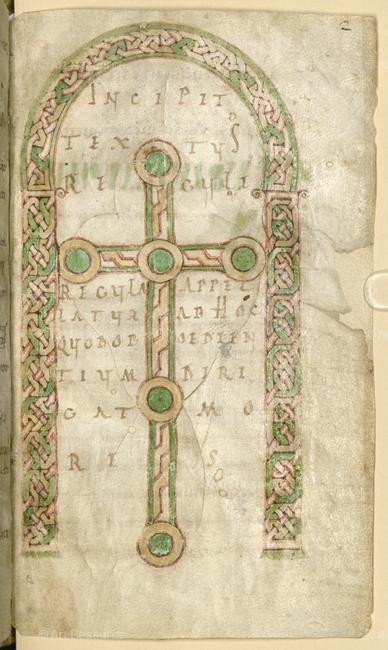 INCIPIT
TEXTUS
REGULE
REGULA APPEL
LATUR AB HOC
QUOD OB OEDIEN
TIUM DIRI
GAT MO
RES
2